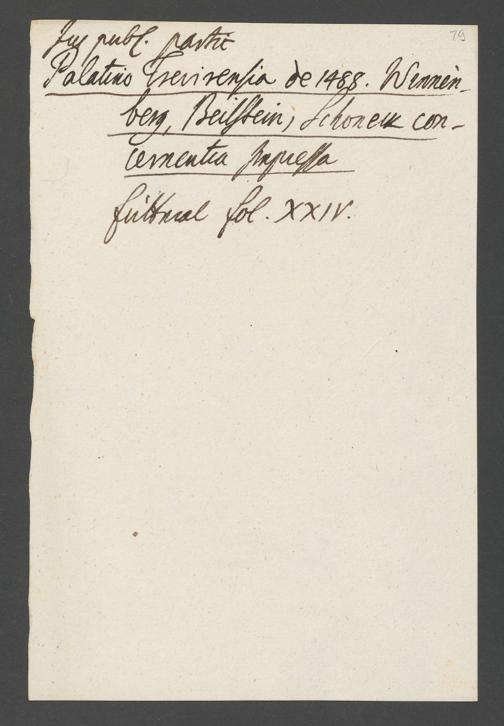 79
Jus publ. partic
Palatino Trevirensia de 1488. Winnen-
berg, Beilstein, Schoneck con-
cernentia Impressa
fol. XXIV.